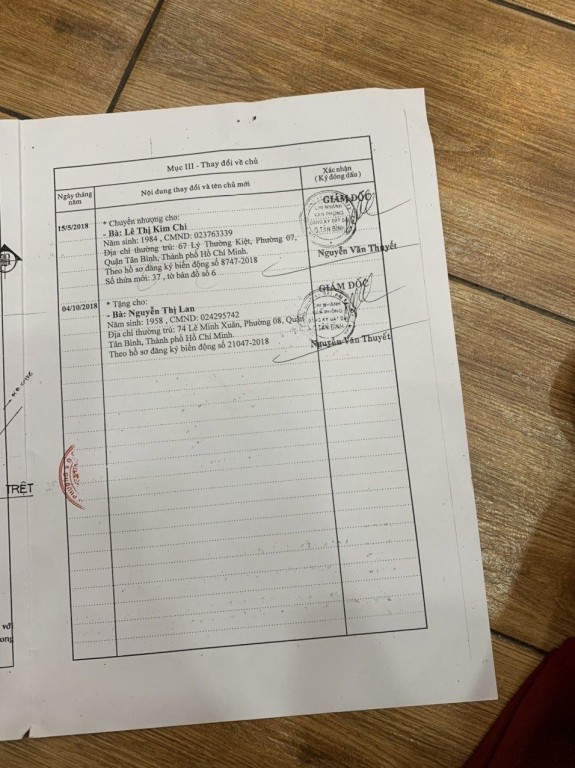 Mục III - Thay đổi về chủ
Ngày tháng năm
Nội dung thay đổi và tên chủ mới
Xác nhận
(Ký đóng dấu)
15/5/2018
* Chuyển nhượng cho:
- Bà: Lê Thị Kim Chi
Năm sinh: 1984 , CMND: 023763339
Địa chỉ thường trú: 67 Lý Thường Kiệt, Phường 07,
Quận Tân Bình, Thành phố Hồ Chí Minh.
Theo hồ sơ đăng ký biến động số 8747-2018
Số thửa mới: 37 , tờ bản đồ số 6
GIÁM ĐỐC
CHI NHÁNH
VĂN PHÒNG
ĐĂNG KÝ ĐẤT ĐAI
Q.TÂN BÌNH
Nguyễn Văn Thuyết
04/10/2018
* Tặng cho:
- Bà: Nguyễn Thị Lan
Năm sinh: 1958 , CMND: 024295742
Địa chỉ thường trú: 74 Lê Minh Xuân, Phường 08, Quận
Tân Bình, Thành phố Hồ Chí Minh.
Theo hồ sơ đăng ký biến động số 21047-2018
GIÁM ĐỐC
CHI NHÁNH
VĂN PHÒNG
ĐĂNG KÝ ĐẤT ĐAI
Q.TÂN BÌNH
Nguyễn Văn Thuyết
TRỆT